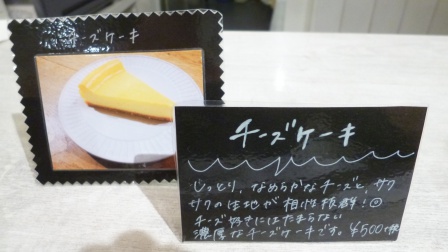 チーズケーキ
チーズケーキ
しっとり、なめらかなチーズと、サク
サクの生地が相性抜群！
チーズ好きにはたまらない
濃厚なチーズケーキです。¥500